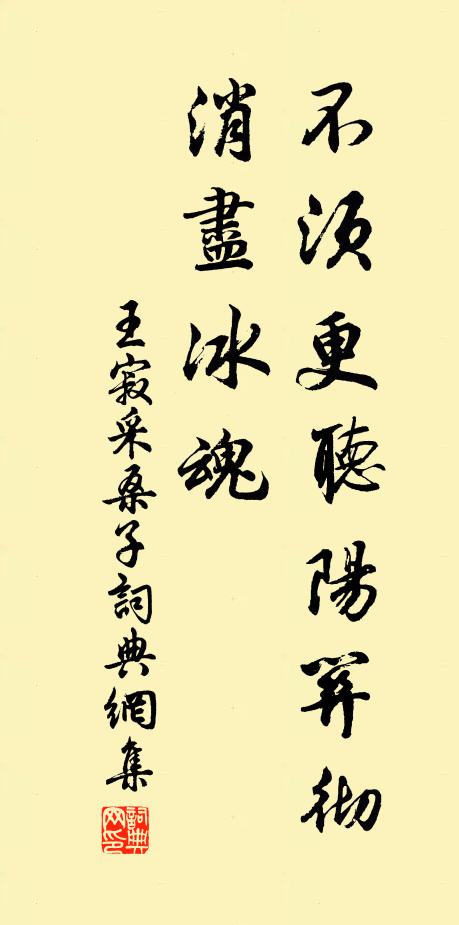 不須更聽陽關徹
消盡冰魂
王寂采桑子詞典網集
詞典網印